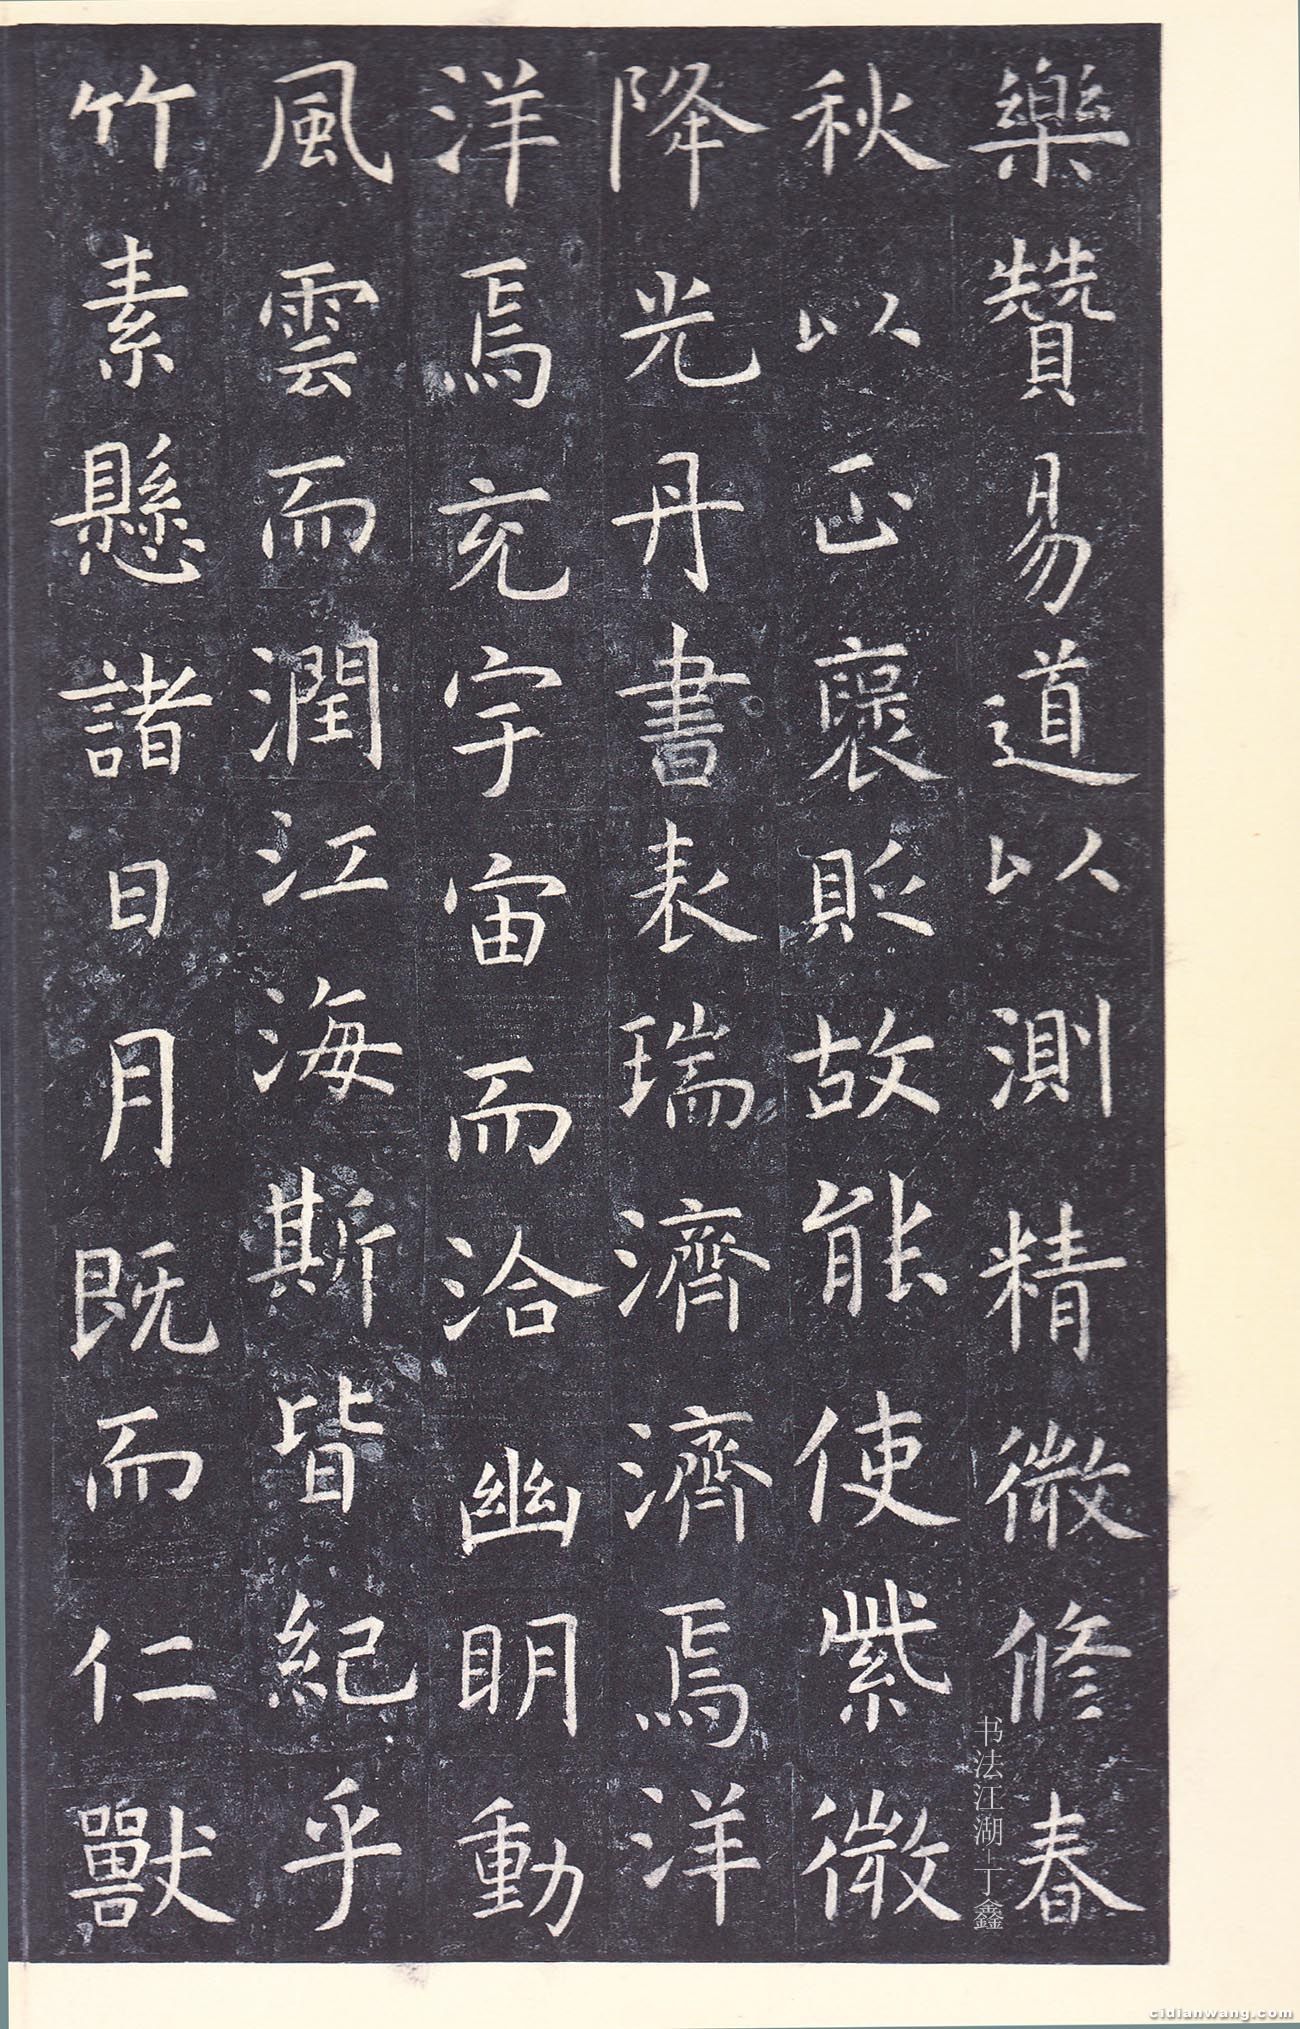 樂贊易道以測精微修春
秋以正襃貶故能使紫微
降光丹書表瑞濟濟焉洋
洋焉充宇宙而洽幽明動
風雲而潤江海斯皆紀乎
竹素懸諸日月既而仁獸
书法江湖-丁鑫
cidianwang.com